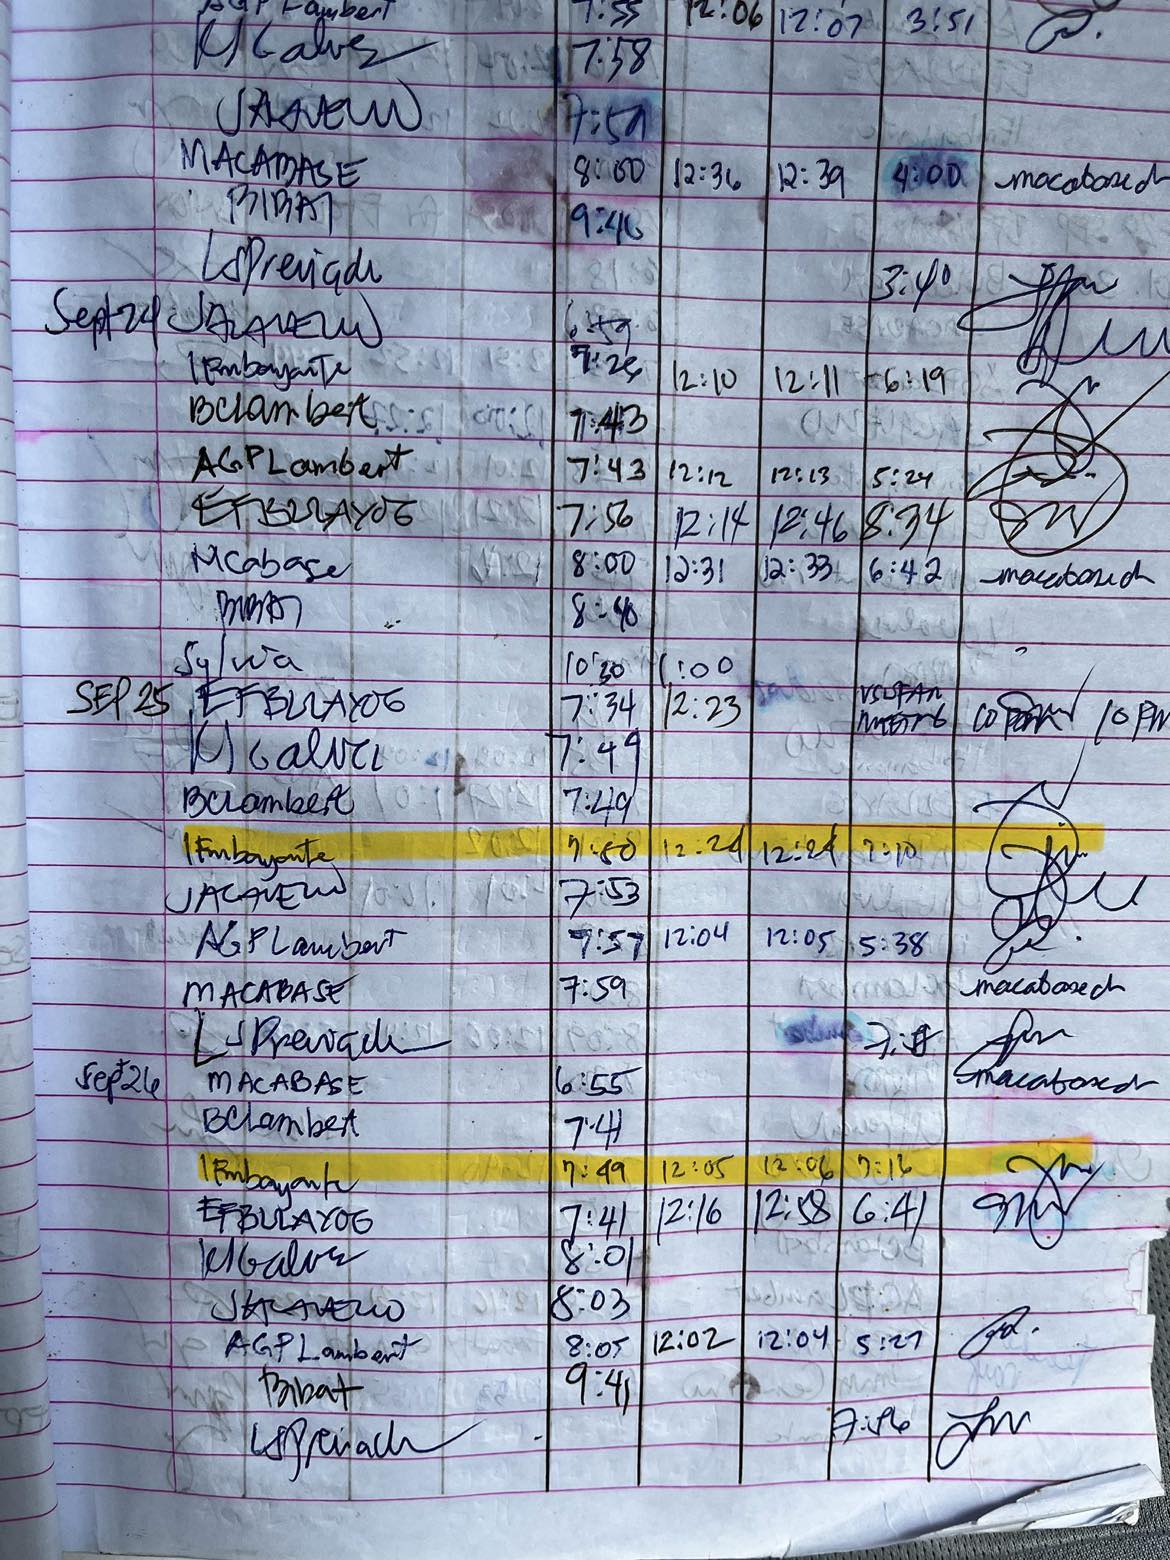 AGPLambert 7:55 12:06 12:07 3:51
KJGalvez 7:58
JAGAVENO 7:59
MACABASE 8:00 12:36 12:39 4:00 macabased
BIBAT 9:46
3:40
Sept 24 6:59
1Embayante 7:26 12:10 12:11 6:19
BClambert 7:43
AGPLambert 7:43 12:12 12:13 5:24
EFBULAYOG 7:56 12:14 12:46 8:34
MCabase 8:00 12:31 12:33 6:42 macabased
BIBAT 8:40
Sylvia 10:30 1:00
SEP 25 EFBULAYOG 7:34 12:23 10 PM
KJGalvez 7:49
BClambert 7:49
1Embayante 7:50 12:24 12:24 7:10
7:53
AGPLambert 7:57 12:04 12:05 5:38
MACABASE 7:59 macabased
Sept 26 MACABASE 6:55 macabased
BClambert 7:41
1Embayante 7:49 12:05 12:06 7:16
EFBULAYOG 7:41 12:16 12:58 6:41
KJGalvez 8:01
8:03
AGPLambert 8:05 12:02 12:04 5:27
Bibat 9:41
7:56